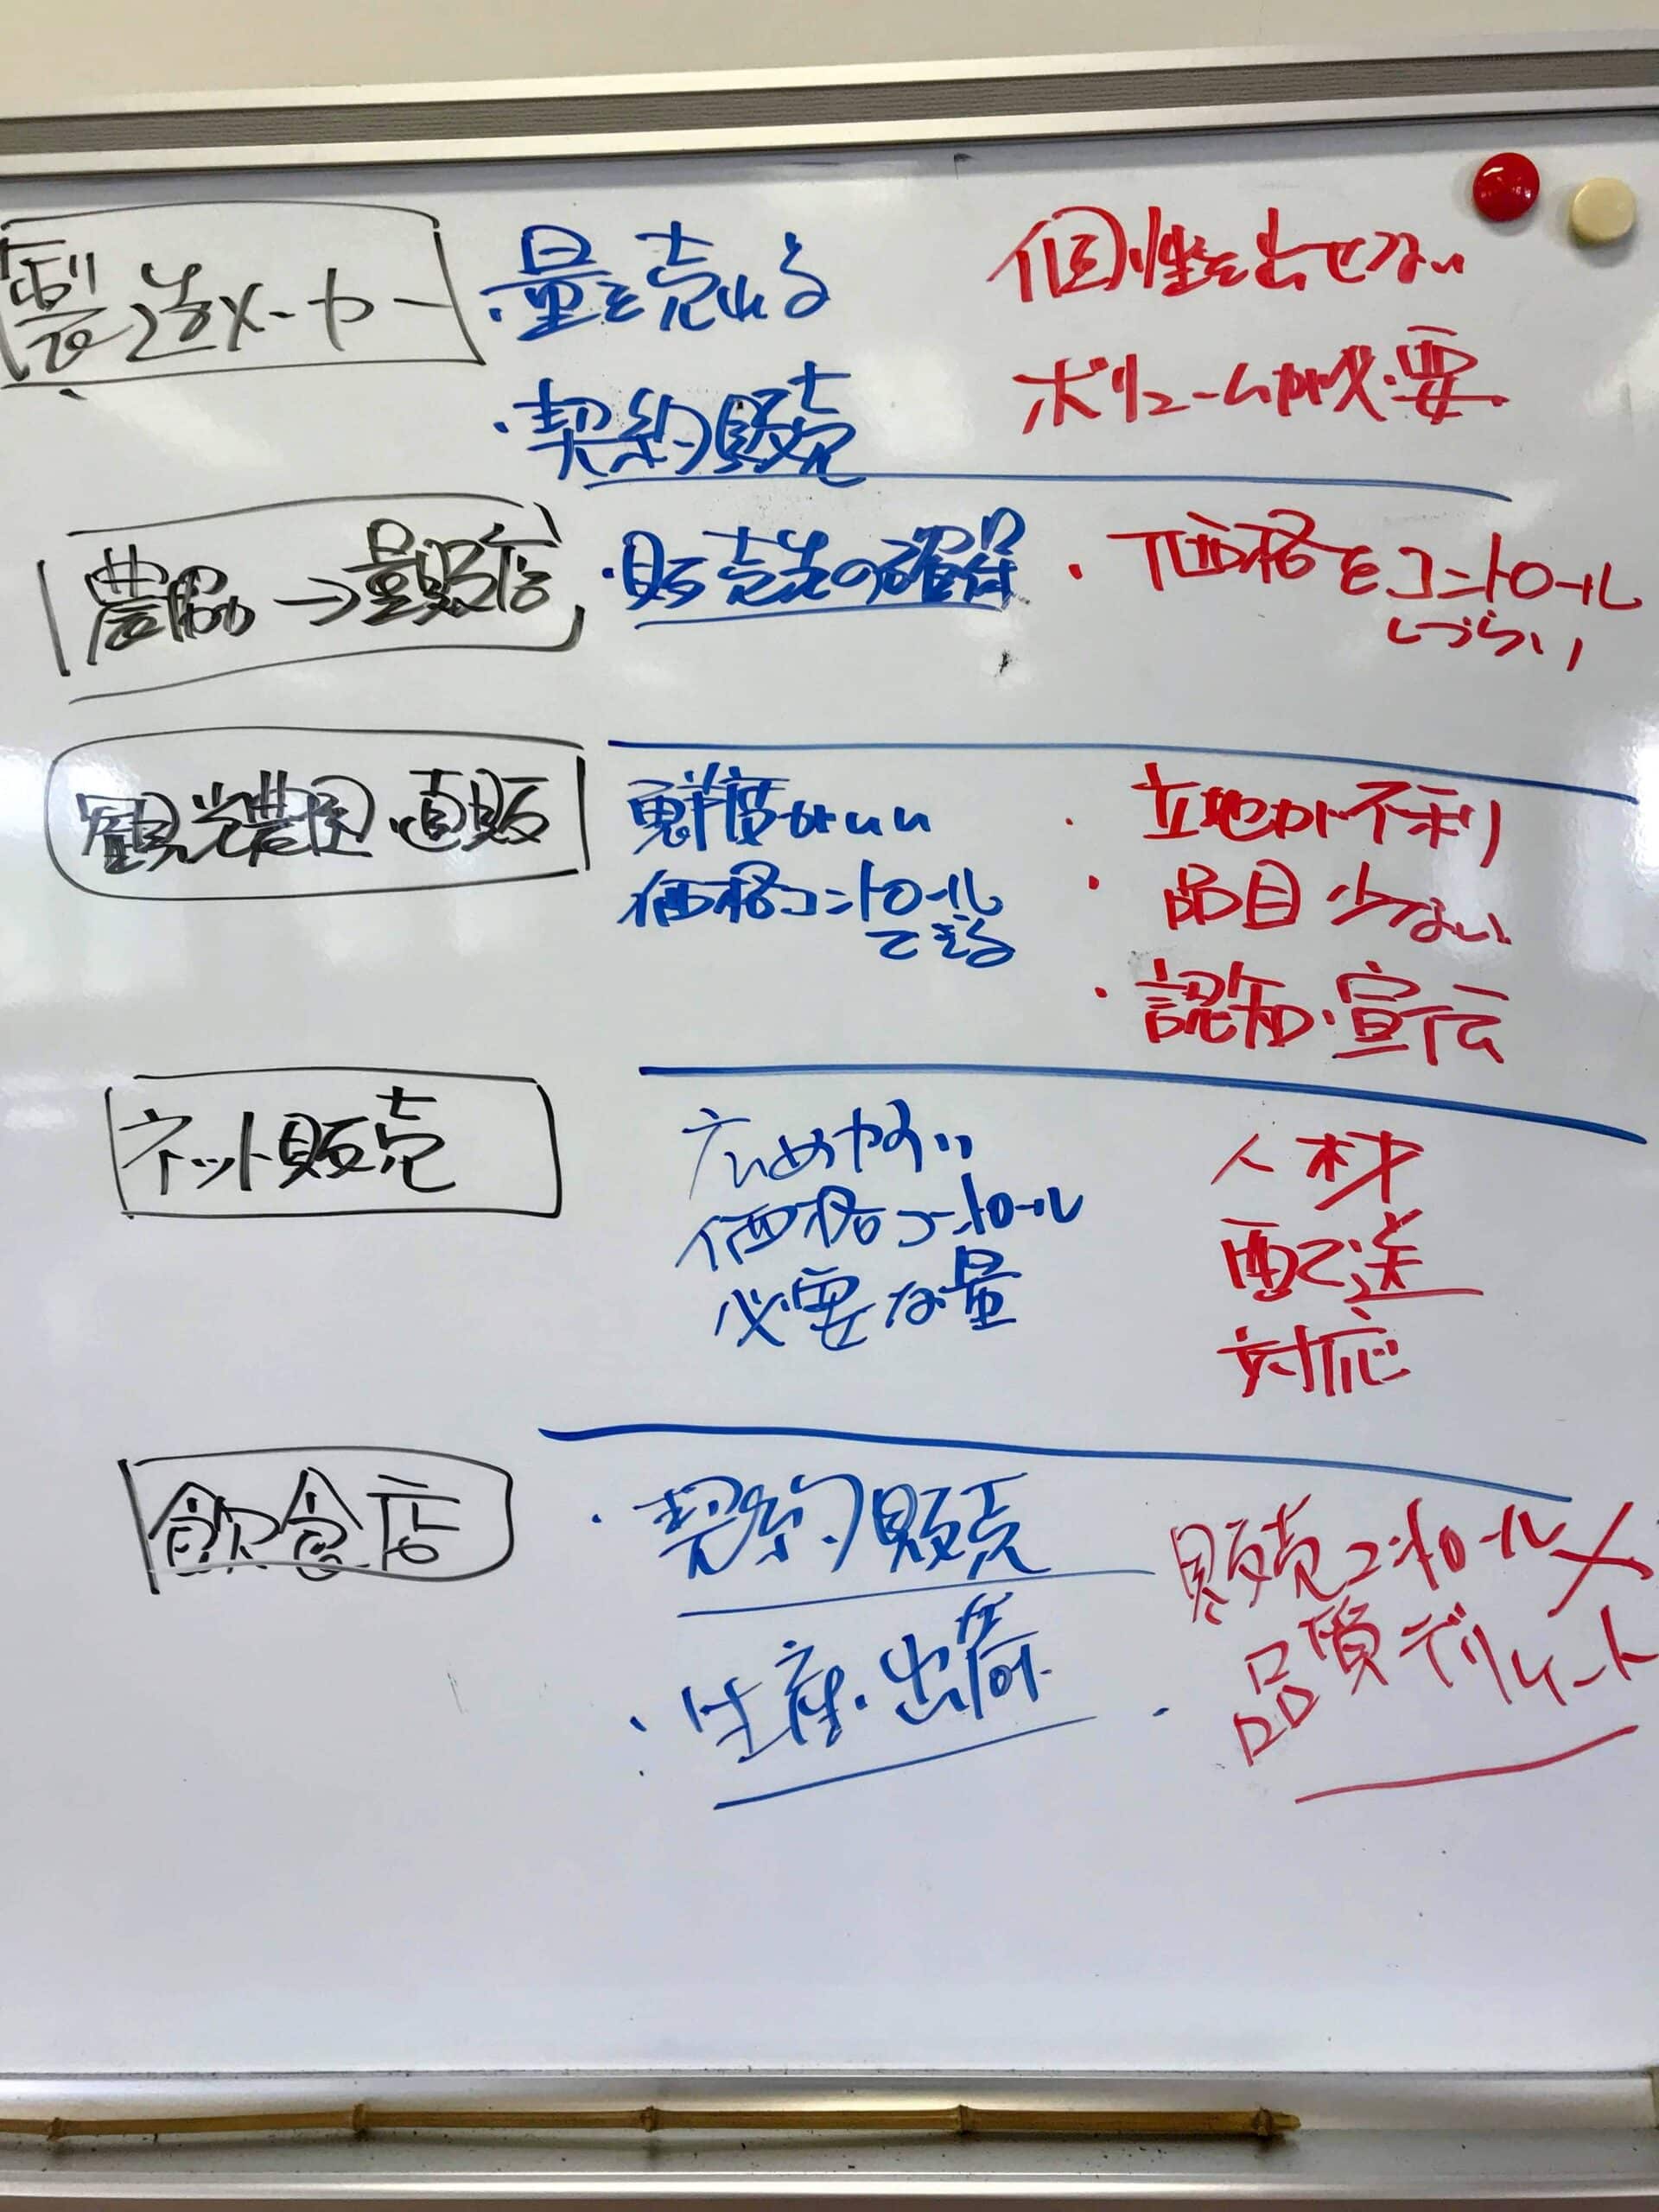 製造メーカー
・量を売れる
・契約販売
個性を出せない
ボリュームが必要
農協→量販店
・販売先の確保
・価格をコントロール
しづらい
観光農園・直販
鮮度がいい
価格コントロール
できる
・立地が不利
・品目少ない
・認知・宣伝
ネット販売
広めやすい
価格コントロール
必要な量
人材
配送
対応
飲食店
・契約販売
・生産・出荷
販売コントロール×
・品質デリケート